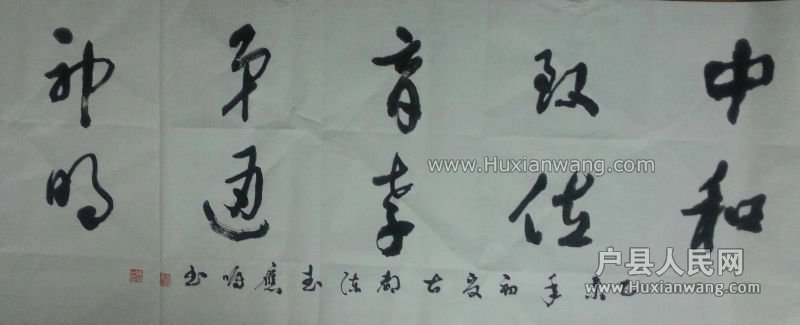 中和
致位
育孝
弟通
神明
乙未年初夏古都陈應书
www.Huxianwang.com
户县人民网
www.Huxianwang.com